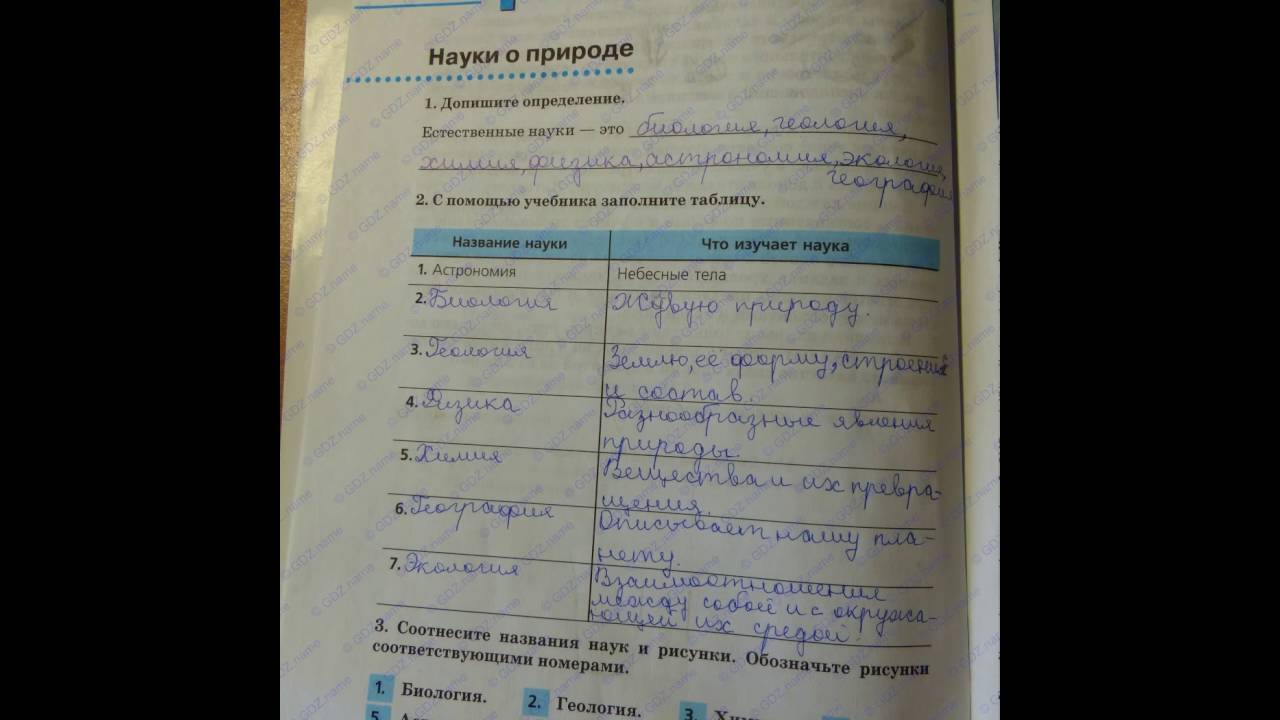 Науки о природе
1. Допишите определение.
Естественные науки — это биология, геология,
химия, физика, астрономия, экология,
география
2. С помощью учебника заполните таблицу.
Название науки Что изучает наука
1. Астрономия Небесные тела
2. Биология Живую природу.
3. Геология Землю, её форму, строение
и состав.
4. Физика Разнообразные явления
природы.
5. Химия Вещества и их превра-
щения.
6. География Описывает нашу пла-
нету.
7. Экология Взаимоотношения
между собой и с окружа-
ющей их средой.
3. Соотнесите названия наук и рисунки. Обозначьте рисунки
соответствующими номерами.
1. Биология. 2. Геология. 3.
5.
© GDZ.name